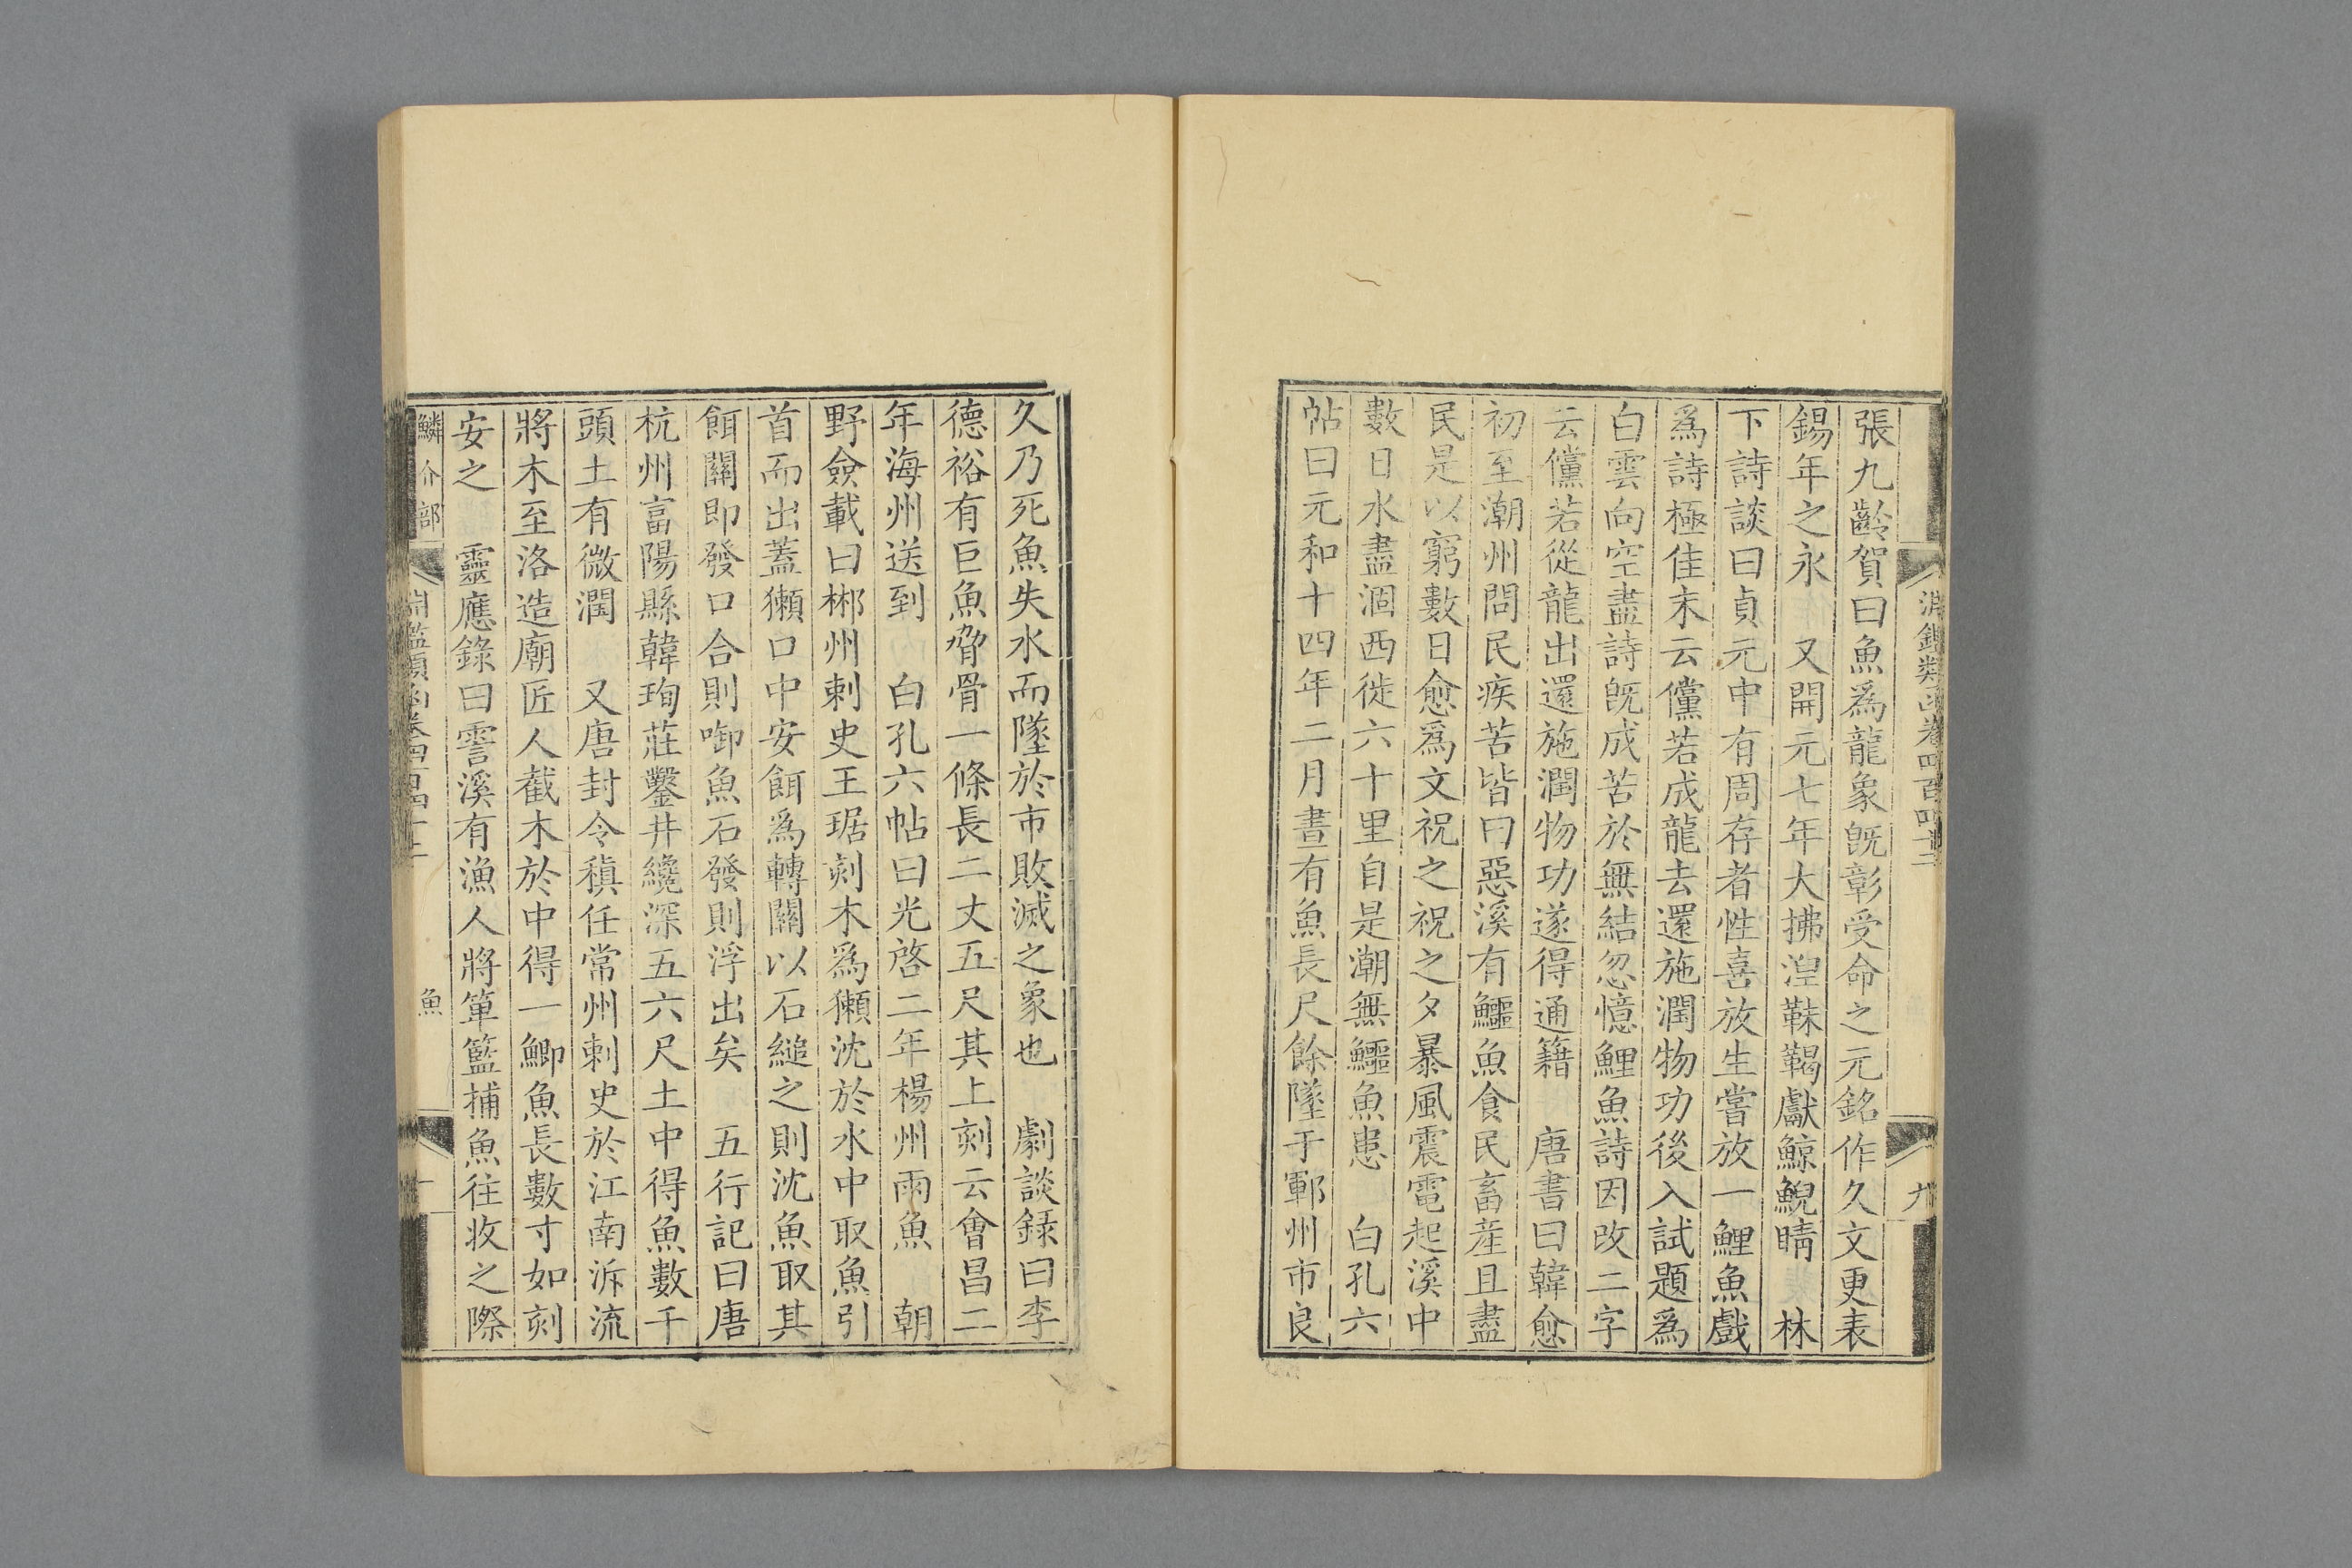 淵鑑類函卷四百四十二
九
張九齡賀曰魚爲龍象旣彰受命之元銘作久文更表
錫年之永 又開元七年大拂涅靺鞨獻鯨鯢睛 林
下詩談曰貞元中有周存者性喜放生嘗放一鯉魚戲
爲詩極佳末云儻若成龍去還施潤物功後入試題爲
白雲向空盡詩旣成苦於無結忽憶鯉魚詩因改二字
云儻若從龍出還施潤物功遂得通籍 唐書曰韓愈
初至潮州問民疾苦皆曰惡溪有鱷魚食民畜産且盡
民是以窮數日愈爲文祝之祝之夕暴風震電起溪中
數日水盡涸西徙六十里自是潮無鱷魚患 白孔六
帖曰元和十四年二月晝有魚長尺餘墜于鄆州市良
久乃死魚失水而墜於市敗滅之象也 劇談録曰李
德裕有巨魚脅骨一條長二丈五尺其上刻云會昌二
年海州送到 白孔六帖曰光啓二年楊州雨魚 朝
野僉載曰郴州刺史王琚刻木爲獺沈於水中取魚引
首而出蓋獺口中安餌爲轉關以石縋之則沈魚取其
餌關即發口合則啣魚石發則浮出矣 五行記曰唐
杭州富陽縣韓珣莊鑿井纔深五六尺土中得魚數千
頭土有微潤 又唐封令稹任常州刺史於江南泝流
將木至洛造廟匠人截木於中得一鯽魚長數寸如刻
安之 靈應錄曰霅溪有漁人將箪籃捕魚往收之際
鱗介部
魚